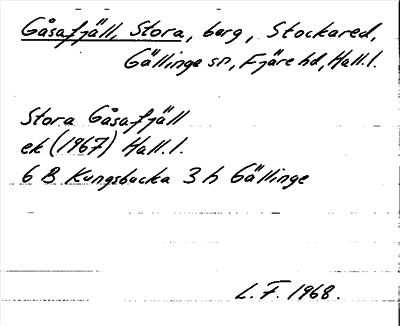 Gåsafjäll, Stora, berg, Stockared,
Gällinge sn, Fjäre hd, Hall.l.
Stora Gåsafjäll
ek (1967) Hall.l.
6 B Kungsbacka 3 h Gällinge
L.F. 1968.